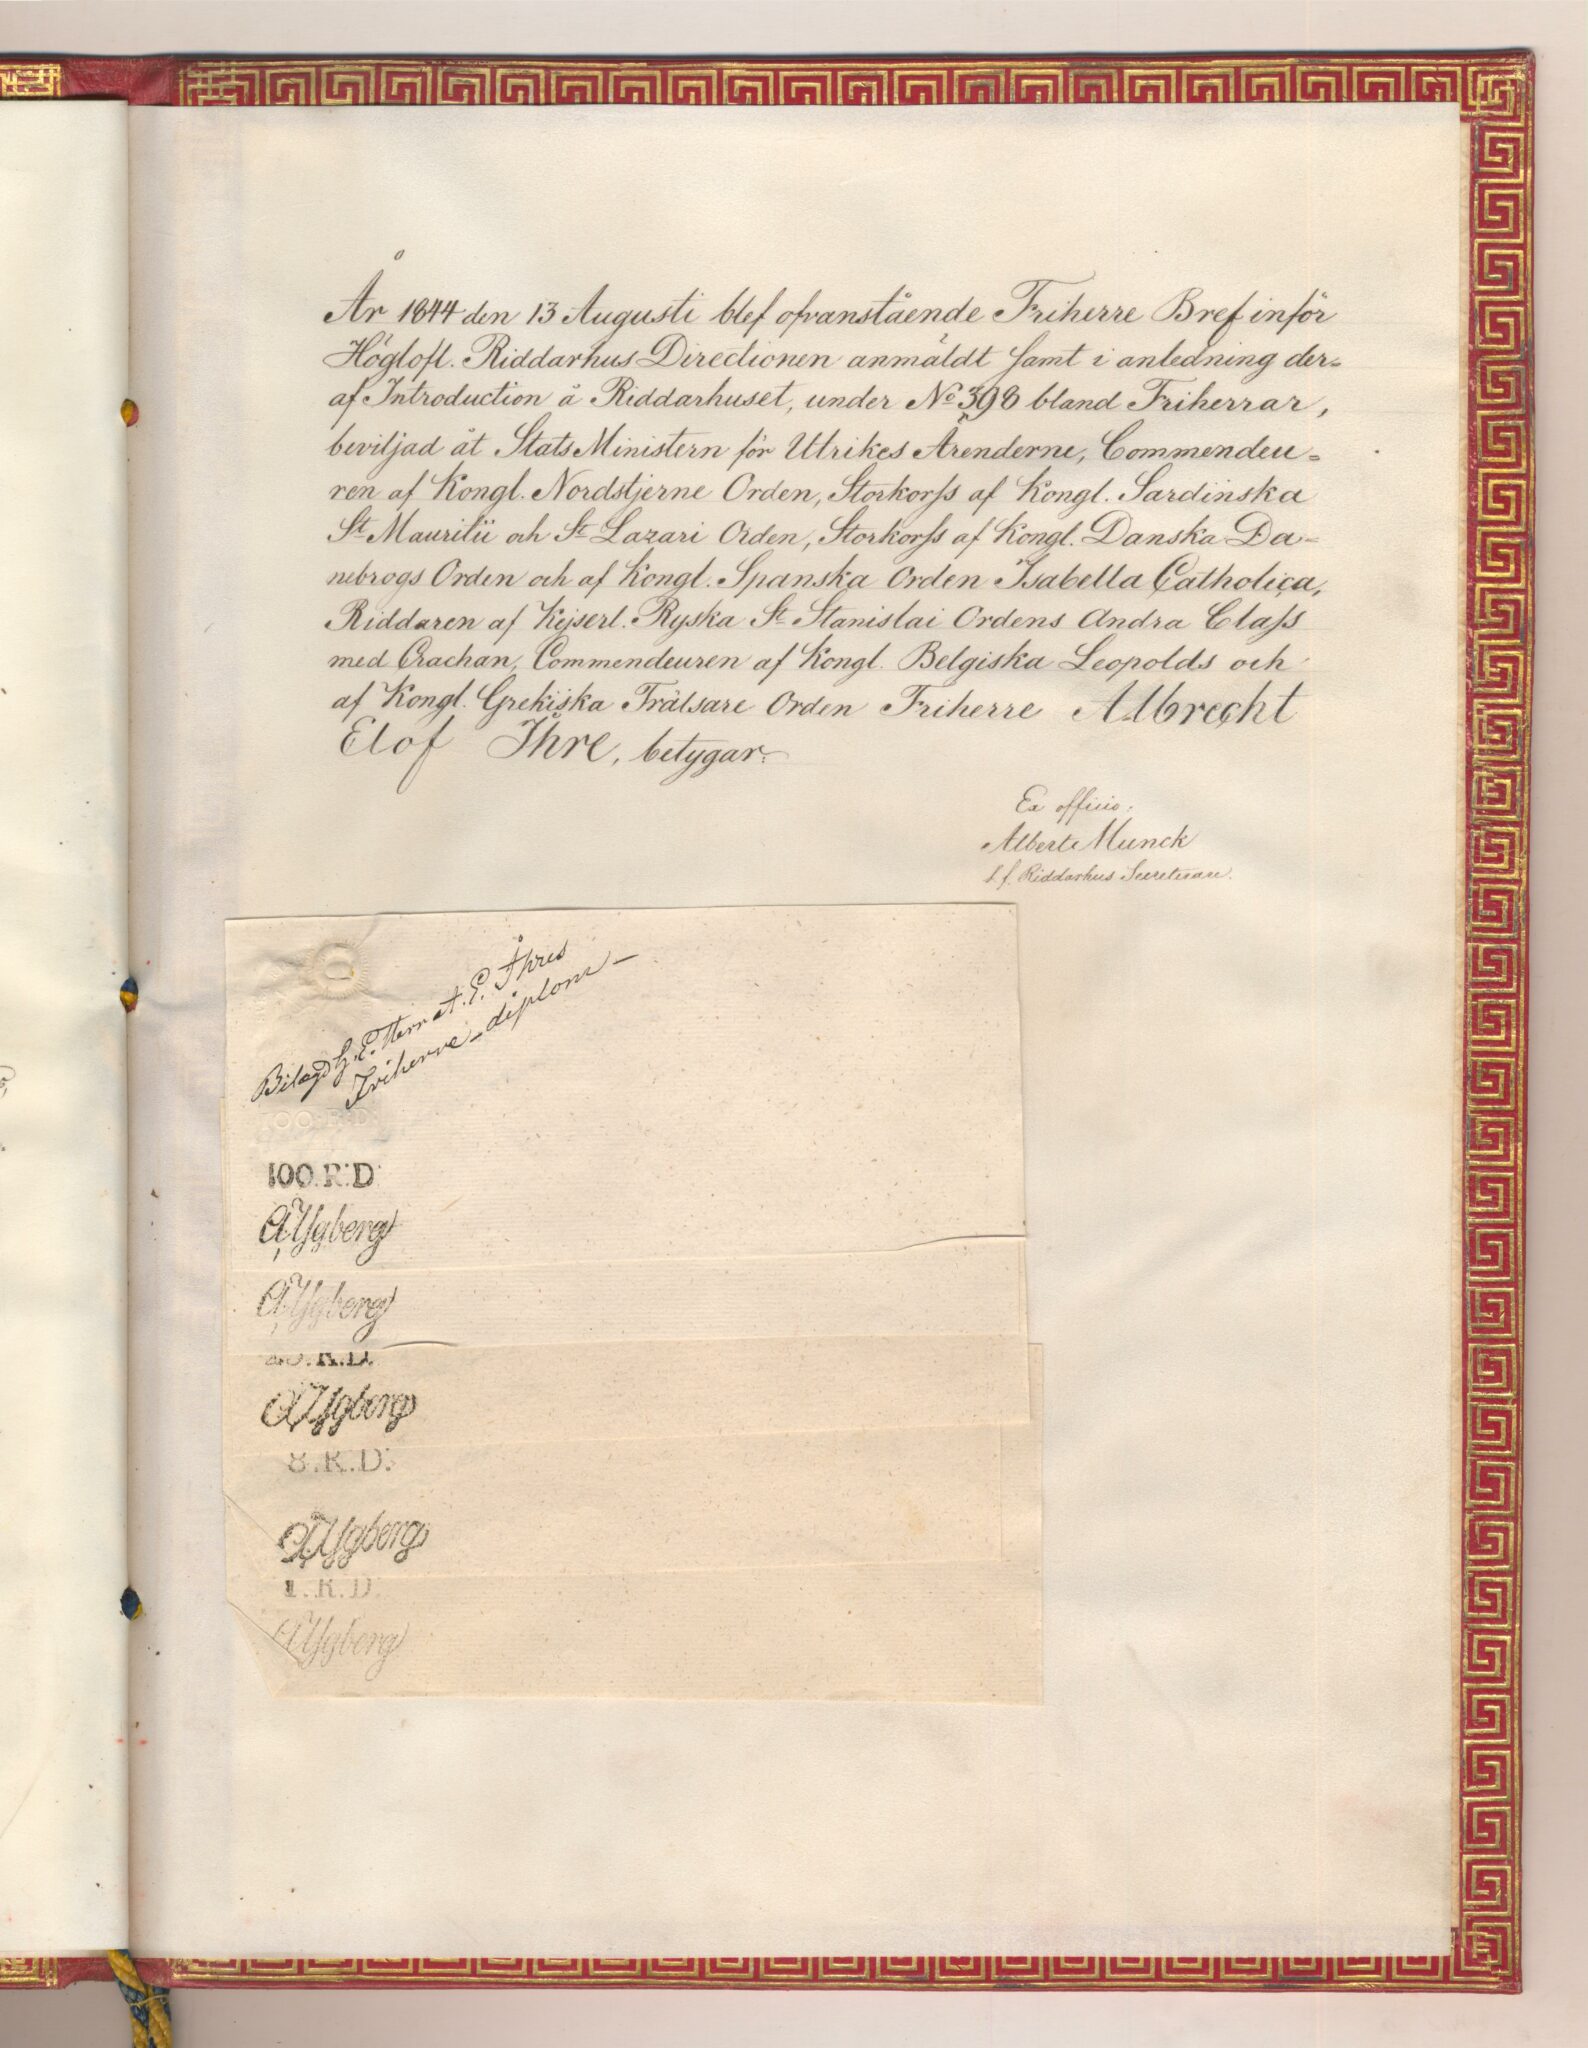 År 1844 den 13 Augusti blef ofvanstående Friherre Bref inför
Höglofl. Riddarhus Directionen anmäldt samt i anledning der=
af Introduction å Riddarhuset, under No 398 bland Friherrar,
beviljad åt Stats Ministern för Utrikes Ärenderne, Commendeu=
ren af Kongl. Nordstjerne Orden, Storkorss af Kongl. Sardinska
St Mauritii och St Lazari Orden, Storkorss af Kongl. Danska Da=
nebrogs Orden och af Kongl. Spanska Orden Isabella Catholica,
Riddaren af Kejserl. Ryska St Stanislai Ordens Andra Class
med Crachan, Commendeuren af Kongl. Belgiska Leopolds och
af Kongl. Grekiska Frälsare Orden Friherre Albrecht
Elof Ihre, betygar.
Ex officio:
Albert Munck
t. f. Riddarhus Secreterare.
Bilagd H. E. Herr A. E. Ihres
Friherre-diplom
100.R:D
100.R:D:
A Ysgberg
A Ysgberg
R.D.
A Ysgberg
8.R.D:
A Ysgberg
1.R.D:
A Ysgberg